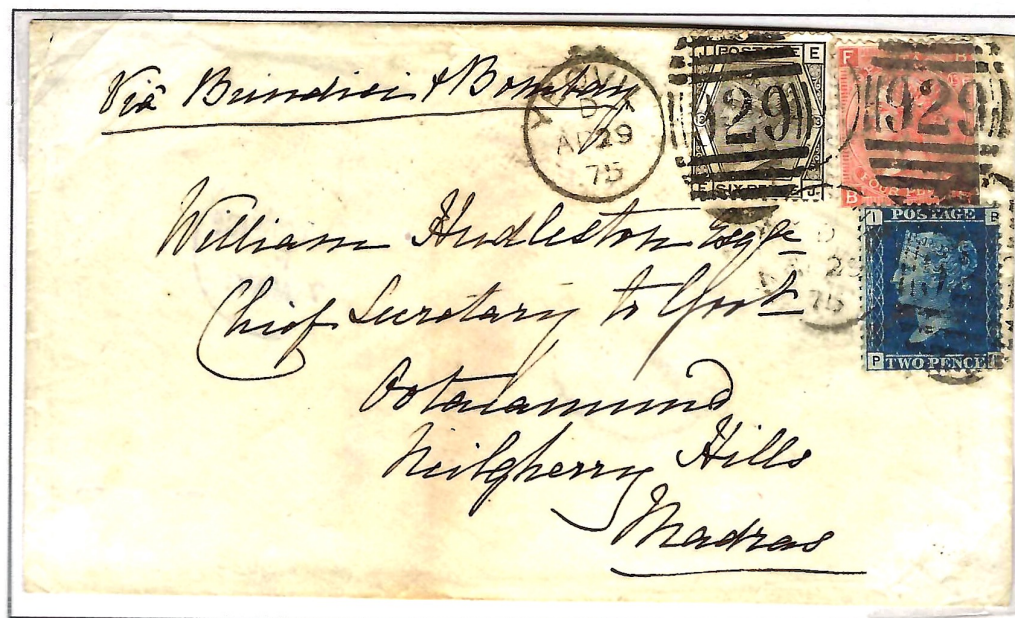 Via Brindisi & Bombay
D
AP 29
75
J POSTAGE E
929
E SIX PENCE J
F B
929
B FOUR PENCE
I POSTAGE R
P TWO PENCE
D
29
75
William Hudleston Esqre
Chief Secretary to Govt
Ootacamund
Neilgherry Hills
Madras